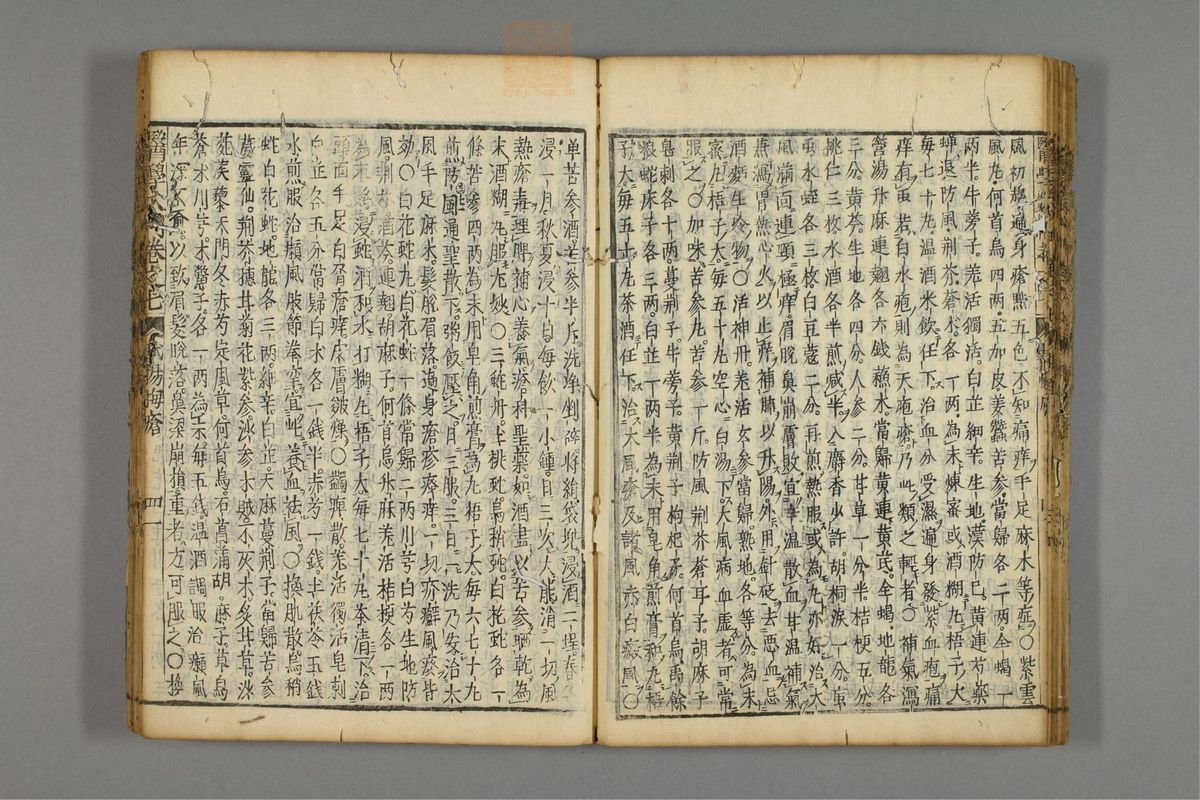 風初起遍身瘡點五色不知痛痒手足麻木等症〇紫雲
風丸何首烏四兩五加皮姜蠶苦參當歸各二兩全蝎一
兩半牛旁子羌活獨活白芷細辛生地漢防巳黃連芍藥
蟬退防風荊芥蒼朮各一兩為末煉蜜或酒糊丸梧子大
每七十丸溫酒米飲任下治血分受濕遍身發紫血疱痛
痒有重若白水疱則為天疱瘡乃此類之輕者〇補氣瀉
營湯升麻連翹各六錢蘇木當歸黃連黃芪全蝎地龍各
三分黃芩生地各四分人參二分甘草一分半桔梗五分
桃仁三枚水酒各半煎減半入麝香少許胡桐淚一分
水蛭各三枚白豆蔻二分再煎熱服或為丸亦好治大
風滿面連頸極痒眉脫鼻崩膚敗宜辛溫散血甘溫補氣
兼瀉胃熱心火以止痒補肺以升陽外用針砭去惡血忌
酒麵生冷物〇活神丹羌活玄參當歸熟地各等分為末
蜜丸梧子大每五十丸空心白湯下大風病血虛者可常
服之〇加味苦參丸苦參一斤防風荊芥蒼耳子胡麻子
皂刺各十兩蔓荊子牛旁子黃荊子枸杞子何首烏禹餘
粮蛇床子各三兩白芷一兩半為末用皂角煎膏和丸梧
子大每五十丸茶酒任下治大風瘡及諸風赤白癜風〇
單苦參酒苦參半斤洗淨剉碎將絹袋兜浸酒二埕春冬
浸一月秋夏浸十日每飲一小鍾日三次大能消一切風
熱瘡毒理脾補心養氣瘡科聖藥如酒盡以苦參晒乾為
末酒糊丸服尤妙〇三蛇丹土桃蛇烏稍蛇白花蛇各一
條苦參四兩為末用皂角煎膏為丸梧子大每六七十丸
煎防風通聖散下粥飯壓之日三服三日一洗乃安治大
風手足麻木髮脫眉落遍身瘡疹瘙痒一切疥癬風疾皆
効〇白花蛇丸白花蛇一條當歸二兩川芎白芍生地防
風荊芥酒芩連翹胡麻子何首烏升麻羌活桔梗各一兩
為末將浸蛇酒和水打糊丸梧子大每七十丸茶清下治
頭面手足白屑瘡痒皮膚皴燥〇蠲痺散羌活獨活皂刺
白芷各五分當歸白朮各一錢半赤芍一錢土茯苓五錢
水煎服治癩風肢節拳攣宜此養血祛風〇換肌散烏稍
蛇白花蛇地龍各三兩細辛白芷天麻蔓荊子當歸苦參
威靈仙荊芥穗甘菊花紫參沙參木賊不灰木炙甘草沙
苑蒺藜天門冬赤芍定風草何首烏石菖蒲胡麻子草烏
蒼朮川芎木鱉子各一兩為末每五錢溫酒調服治癩風
年深不愈以致眉髮脫落鼻梁崩損重者方可服之〇換
瘍梅瘡
四一